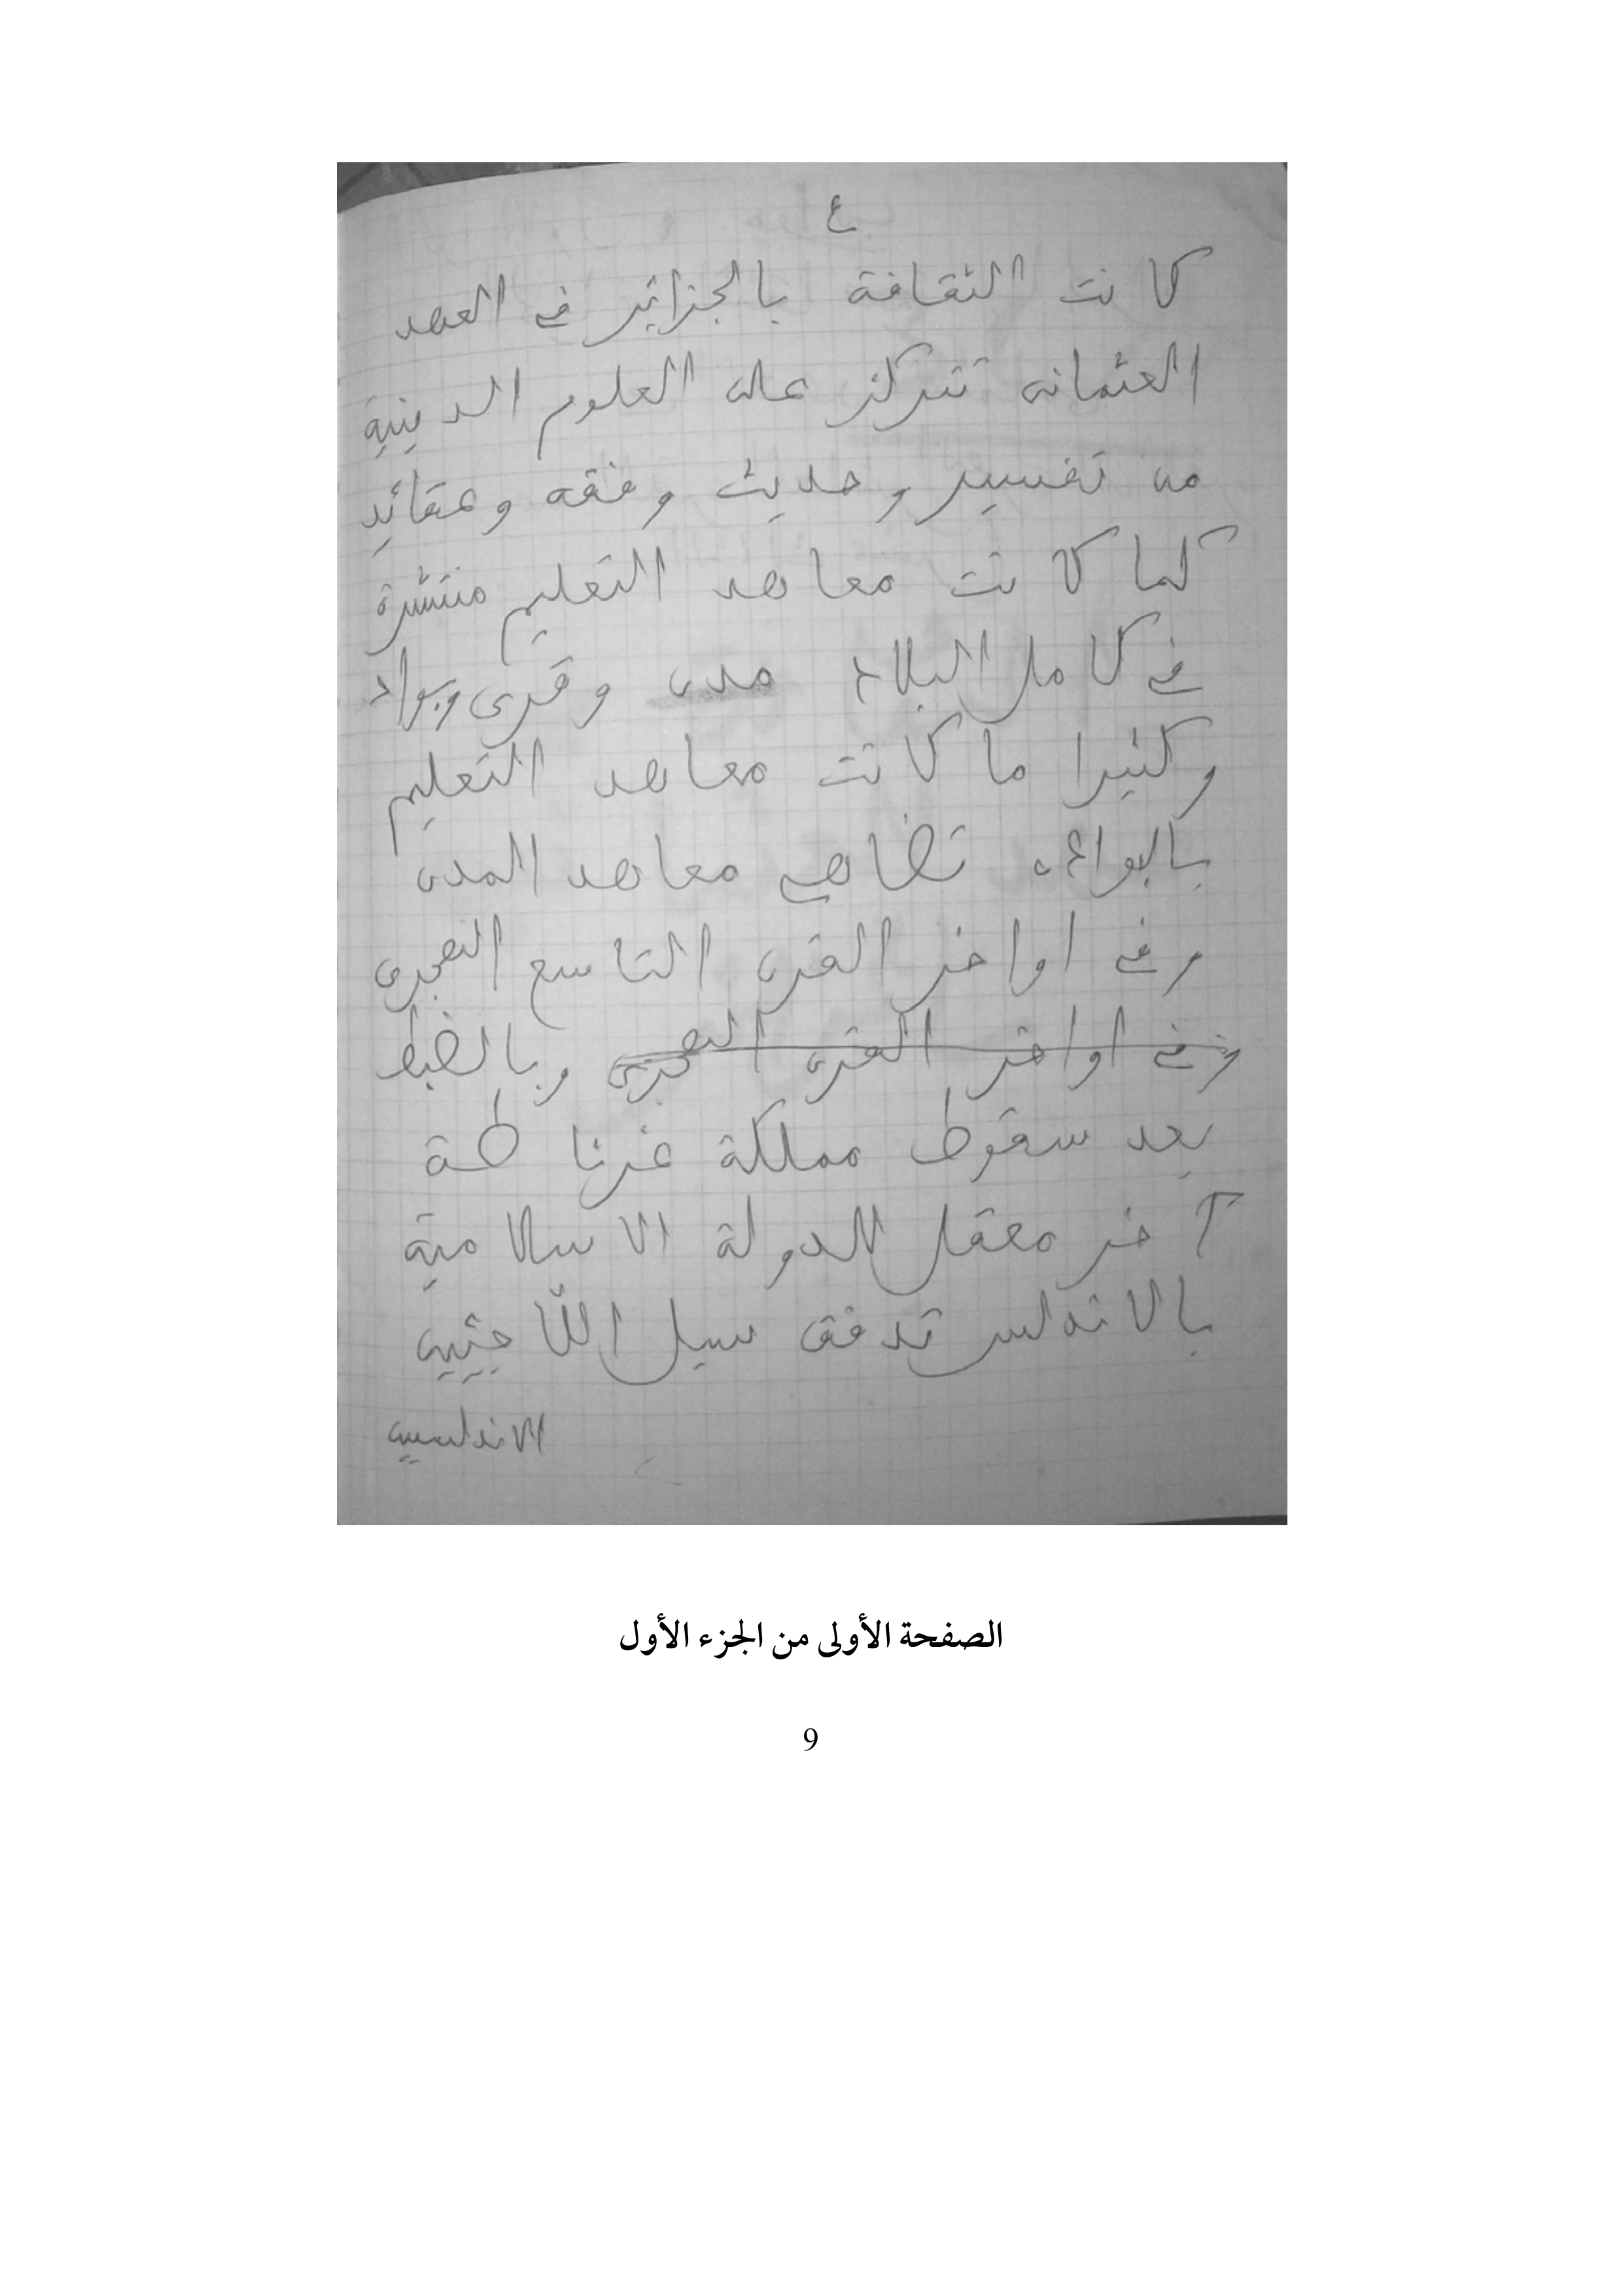 ع
كانت الثقافة بالجزائر في العهد
العثماني تتركز على العلوم الدينية
من تفسير وحديث وفقه وعقائد
كما كانت معاهد التعليم منتشرة
في كامل البلاد مدن وقرى وبواد
وكثيرا ما كانت معاهد التعليم
بالبوادي تضاهي معاهد المدن
وفي اواخر القرن التاسع الهجري
وفي اواخر القرن الهجري وبالضبط
بعد سقوط مملكة غرناطة
آخر معقل للدولة الاسلامية
بالاندلس تدفق سيل اللّاجئين
الاندلسيين
الصفحة الأولى من الجزء الأول
9